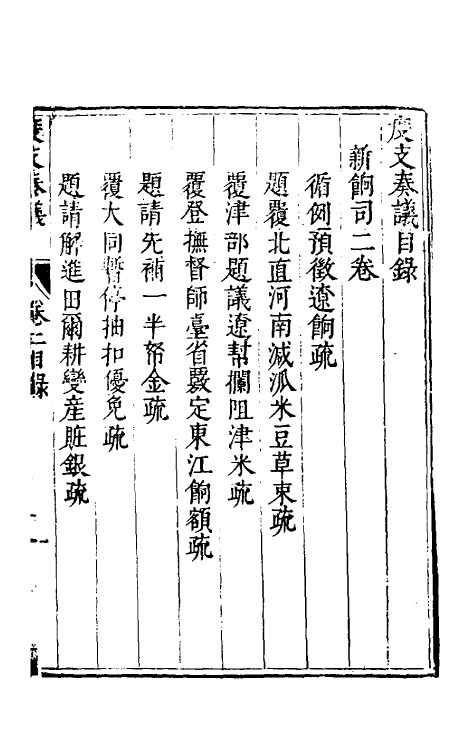 度支奏議目錄
新餉司二卷
循例預徵遼餉疏
題覆北直河南減派米豆草束疏
覆津部題議遼幫攔阻津米疏
覆登撫督師臺省覈定東江餉額疏
題請先補一半帑金疏
覆大同暫停抽扣優免疏
題請解進田爾耕變產賍銀疏
度支奏議
卷二目錄
一